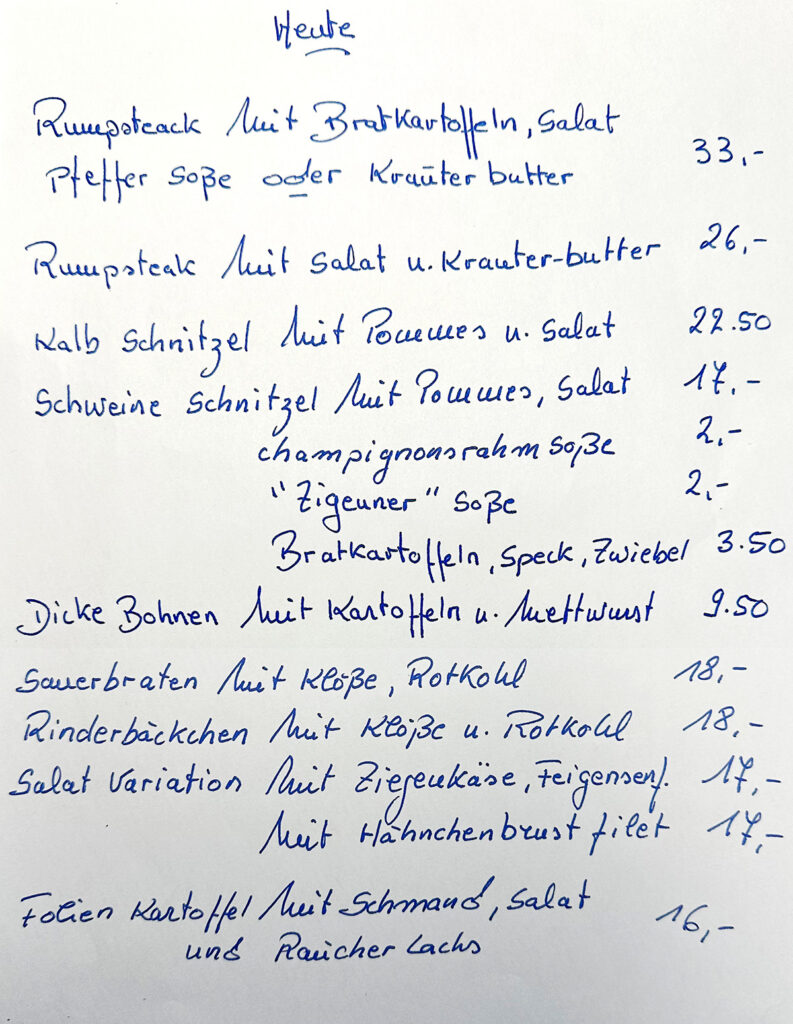 Heute
Rumpsteack Mit Bratkartoffeln, Salat
Pfeffer Soße oder Kraüter butter 33,-
Rumpsteak Mit Salat u. Krauter-butter 26,-
Kalb Schnitzel Mit Pommes u. Salat 22.50
Schweine Schnitzel Mit Pommes, Salat 17,-
champignonsrahm Soße 2,-
"Zigeuner" Soße 2,-
Bratkartoffeln, Speck, Zwiebel 3.50
Dicke Bohnen Mit Kartoffeln u. Mettwurst 9.50
Sauerbraten Mit Klöße, Rotkohl 18,-
Rinderbäckchen Mit Klöße u. Rotkohl 18,-
Salat Variation Mit Ziegenkäse, Feigensenf. 17,-
Mit Hähnchenbrust filet 17,-
Folien Kartoffel Mit Schmand, Salat
und Raücher Lachs 16,-